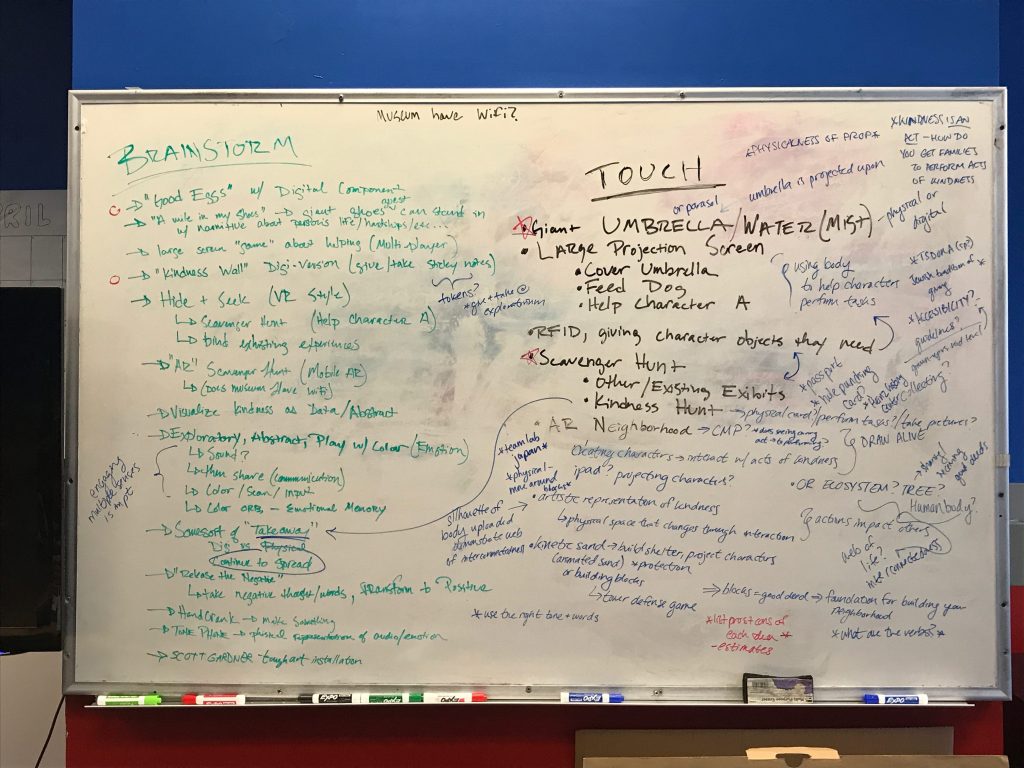 MUSEUM HAVE WIFI?
BRAINSTORM
→ "GOOD EGGS" w/ DIGITAL COMPONENT
→ "A mile in my shoes" → giant shoes guest can stand in
w/ narrative about person's life/hardships/etc...
→ large screen "game" about helping (Multi-player)
→ "Kindness Wall" Digi-version (give/take sticky notes)
→ Hide + Seek (VR Style)
↳ Scavenger Hunt (Help CHARACTER A)
↳ existing experiences
tokens?
*give + take @
exploratorium
→ "AR" Scavenger Hunt (Mobile AR)
↳ (DOES MUSEUM HAVE WIFI)
→ Visualize kindness as Data/Abstract
→ Exploratory, Abstract, Play w/ Color (Emotion)
↳ Sound?
↳ then share (communication)
↳ Color / Scan / Input
↳ Color ORB - Emotional Memory
engaging
multiple senses
is impt
→ Some sort of "Takeaway"
Digi vs Physical
Continue to Spread
→ "Release the Negative"
↳ take negative thought/words, transform to Positive
→ Hand Crank → Make Something
→ TONE PHONE → physical representation of audio/emotion
→ SCOTT GARDNER - touch art installation
TOUCH
*PHYSICALNESS OF PROP*
*KINDNESS IS AN
ACT - HOW DO
YOU GET FAMILIES
TO PERFORM ACTS
OF KINDNESS
or parasol
umbrella is projected upon
*GIANT UMBRELLA/WATER (MIST)
- physical or
digital
• LARGE PROJECTION SCREEN
• COVER UMBRELLA
• FEED DOG
• HELP CHARACTER A
using body
to help characters
perform tasks
Jewish tradition of
giving
*ACCESSIBILITY?
guidelines?
• RFID, GIVING CHARACTER OBJECTS THEY NEED
*SCAVENGER HUNT
• OTHER/EXISTING EXIBITS
• KINDNESS HUNT → physical card?/perform tasks?/take pictures?
*passport
*hole punching
card?
collecting?
• AR NEIGHBORHOOD → CMP?
*does seeing an
act → to performing?
DRAW ALIVE
*teamlab
japan*
*physical-
move around
blocks*
creating characters → interact w/ acts of kindness
ipad? projecting characters?
• OR ECOSYSTEM? TREE?
Human body?
good deeds
• artistic representation of kindness
↳ physical space that changes through interaction
actions impact others
web of
life?
interconnectedness
silhouette of
body uploaded
demonstrate web
of interconnectedness
• kinetic sand → build shelter, project characters
(animated sand) *protection
or building blocks
↳ tower defense game
→ blocks = good deed → foundation for building your
neighborhood
*use the right tone + words
*list pros + cons of
each idea*
- estimates
*what are the verbs?*